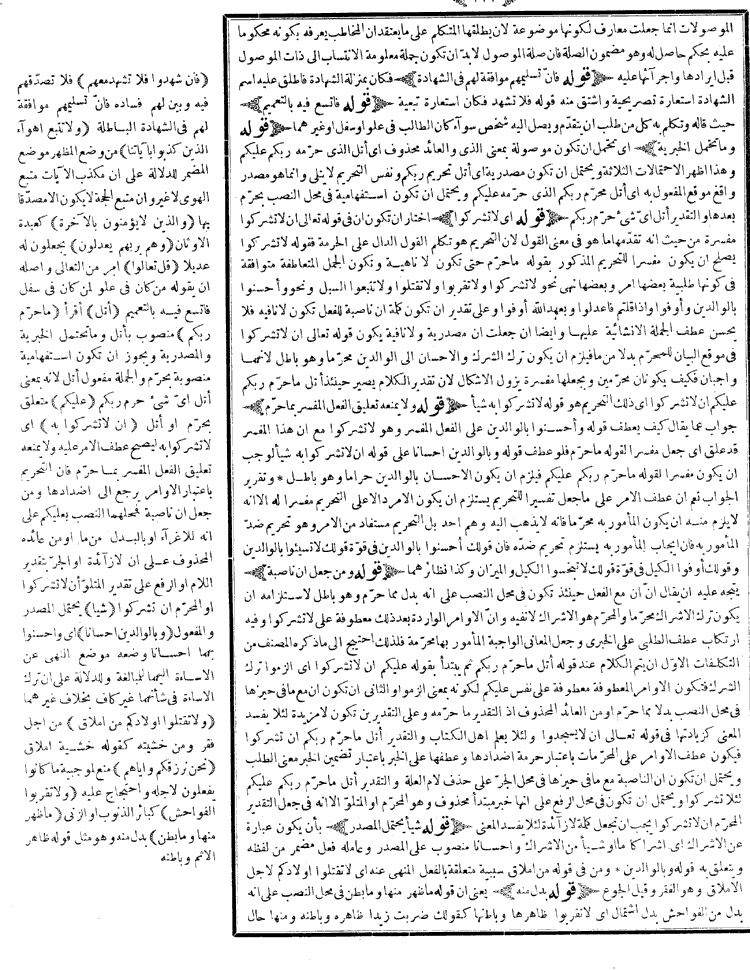 الموصولات انما جعلت معارف لكونها موضوعة لان يطلقها المتكلم على ما يعتقد ان المخاطب يعرفه بكونه محكوما
عليه بحكم حاصل له وهو مضمون الصلة فان صلة الموصول لابد ان تكون جملة معلومة الانتساب الى ذات الموصول
قبل ايرادها واجرآئها عليه ﴿قوله فان تسليمهم موافقة لهم فى الشهادة﴾ فكان بمنزلة الشهادة فاطلق عليه اسم
الشهادة استعارة تصريحية واشتق منه قوله فلا تشهد فكان استعارة تبعية ﴿قوله فاتسع فيه بالتعميم﴾
حيث قاله وتكلم به كل من طلب ان يتقدم ويصل اليه شخص سوآء كان الطالب فى علو او سفل او غير هما ﴿قوله
وما تحتمل الخبرية﴾ اى تحتمل ان تكون موصولة بمعنى الذى والعائد محذوف اى أتل الذى حرمه ربكم عليكم
وهذا اظهر الاحتمالات الثلاثة ويحتمل ان تكون مصدرية اى أتل تحريم ربكم ونفس التحريم لا يتلى وانما هو مصدر
واقع موقع المفعول به اى أتل محرم ربكم الذى حرمه عليكم ويحتمل ان تكون استفهامية فى محل النصب بحرم
بعدها والتقدير أتل اى شئ حرم ربكم ﴿قوله اى لا تشركوا﴾ اختار ان تكون ان فى قوله تعالى ان لا تشركوا
مفسرة من حيث انه تقدمها ما هو فى معنى القول لان التحريم هو تكلم القول الدال على الحرمة فقوله لا تشركوا
يصلح ان يكون مفسرا للتحريم المذكور بقوله ما حرم حتى تكون لا ناهية وتكون الجمل المتعاطفة متوافقة
فى كونها طلبية بعضها امر وبعضها نهى نحو لا تشركوا ولا تقربوا ولا تقتلوا ولا تتبعوا السبل ونحو وأحسنوا
بالوالدين وأوفوا واذا قلتم فاعدلوا وبعهد الله أوفوا وعلى تقدير ان تكون كلمة ان ناصبة للفعل تكون لا نافية فلا
يحسن عطف الجملة الانشائية عليها وايضا ان جعلت ان مصدرية ولا نافية يكون قوله تعالى ان لا تشركوا
فى موقع البيان للمحرم بدلا من ما فيلزم ان يكون ترك الشرك والاحسان الى الوالدين محرما وهو باطل لانهما
واجبان فكيف يكونان محرمين وبجعلها مفسرة يزول الاشكال لان تقدير الكلام يصير حينئذ أتل ما حرم ربكم
عليكم ان لا تشركوا اى ذلك التحريم هو قوله لا تشركوا به شيأ ﴿قوله ولا يمنعه تعليق الفعل المفسر بما حرم﴾
جواب عما يقال كيف يعطف قوله وأحسنوا بالوالدين على الفعل المفسر وهو لا تشركوا مع ان هذا المفسر
قد علق اى جعل مفسرا لقوله ما حرم فلو عطف قوله وبالوالدين احسانا على قوله ان لا تشركوا به شيأ لوجب
ان يكون مفسرا لقوله ما حرم ربكم عليكم فيلزم ان يكون الاحسان بالوالدين حراما وهو باطل * وتقرير
الجواب نعم ان عطف الامر على ما جعل تفسيرا للتحريم يستلزم ان يكون الامر دالا على التحريم مفسرا له الا انه
لا يلزم منه ان يكون المأمور به محرما فانه لا يذهب اليه وهم احد بل التحريم مستفاد من الامر وهو تحريم ضد
المأمور به فان ايجاب المأمور به يستلزم تحريم ضده فان قولك أحسنوا بالوالدين فى قوة قولك لا تسيئوا بالوالدين
وقولك أوفوا الكيل فى قوة قولك لا تبخسوا الكيل والميزان وكذا نظائرهما ﴿قوله ومن جعل ان ناصبة﴾
يتجه عليه ان يقال ان ان مع الفعل حينئذ تكون فى محل النصب على انه بدل مما حرم وهو باطل لاستلزامه ان
يكون ترك الاشراك محرما والمحرم هو الاشراك لا نفيه وان الاوامر الواردة بعد ذلك معطوفة على لا تشركوا وفيه
ارتكاب عطف الطلبى على الخبرى وجعل المعانى الواجبة المأمور بها محرمة فلذلك احتيج الى ما ذكره المصنف من
التكلفات الاول ان يتم الكلام عند قوله أتل ما حرم ربكم ثم يبتدأ بقوله عليكم ان لا تشركوا اى الزموا ترك
الشرك فتكون الاوامر المعطوفة معطوفة على نفس عليكم لكونه بمعنى الزموا والثانى ان تكون ان مع ما فى حيزها
فى محل النصب بدلا مما حرم او من العائد المحذوف اذ التقدير ما حرمه وعلى التقديرين تكون لا مزيدة لئلا يفسد
المعنى كزيادتها فى قوله تعالى ان لا يسجدوا ولئلا يعلم اهل الكتاب والتقدير أتل ما حرم ربكم ان تشركوا
فيكون عطف الاوامر على المحرمات باعتبار حرمة اضدادها وعطفها على الخبر باعتبار تضمين الخبر معنى الطلب
ويحتمل ان تكون ان الناصبة مع ما فى حيزها فى محل الجر على حذف لام العلة والتقدير أتل ما حرم ربكم عليكم
لئلا تشركوا ويحتمل ان تكون فى محل الرفع على انها خبر مبتدأ محذوف وهو المحرم او المتلو الا انه فى جعل التقدير
المحرم ان لا تشركوا يجب ان تجعل كلمة لا زآئدة لئلا يفسد المعنى ﴿قوله شيأ يحتمل المصدر﴾ بأن يكون عبارة
عن الاشراك اى اشراكا ما او شيأ من الاشراك واحسانا منصوب على المصدر وعامله فعل مضمر من لفظه
ويتعلق به قوله وبالوالدين * ومن فى قوله من املاق سببية متعلقة بالفعل المنهى عنه اى لا تقتلوا اولادكم لاجل
الاملاق وهو الفقر وقيل الجوع ﴿قوله بدل منه﴾ يعنى ان قوله ما ظهر منها وما بطن فى محل النصب على انه
بدل من الفواحش بدل اشتمال اى لا تقربوا ظاهرها وباطنها كقولك ضربت زيدا ظاهره وباطنه ومنها حال
(فان شهدوا فلا تشهد معهم) فلا تصدقهم
فيه وبين لهم فساده فان تسليمهم موافقة
لهم فى الشهادة الباطلة (ولا تتبع اهوآء
الذين كذبوا بآياتنا) من وضع المظهر موضع
المضمر للدلالة على ان مكذب الآيات متبع
الهوى لا غير وان متبع الحجة لا يكون الا مصدقا
بها (والذين لا يؤمنون بالآخرة) كعبدة
الاوثان (وهم بربهم يعدلون) يجعلون له
عديلا (قل تعالوا) امر من التعالى واصله
ان يقوله من كان فى علو لمن كان فى سفل
فاتسع فيه بالتعميم (أتل) أقرأ (ما حرم
ربكم) منصوب بأتل وما تحتمل الخبرية
والمصدرية ويجوز ان تكون استفهامية
منصوبة بحرم والجملة مفعول أتل لانه بمعنى
أتل اى شئ حرم ربكم (عليكم) متعلق
بحرم او أتل (ان لا تشركوا به) اى
لا تشركوا به ليصح عطف الامر عليه ولا يمنعه
تعليق الفعل المفسر بما حرم فان التحريم
باعتبار الاوامر يرجع الى اضدادها ومن
جعل ان ناصبة فمحلها النصب بعليكم على
انه للاغرآء او بالبدل من ما او من عائده
المحذوف على ان لا زآئدة او الجر بتقدير
اللام او الرفع على تقدير المتلو أن لا تشركوا
او المحرم ان تشركوا (شيأ) يحتمل المصدر
والمفعول (وبالوالدين احسانا) اى واحسنوا
بهما احسانا وضعه موضع النهى عن
الاساءة اليهما للمبالغة وللدلالة على ان ترك
الاساءة فى شأنهما غير كاف بخلاف غيرهما
(ولا تقتلوا اولادكم من املاق) من اجل
فقر ومن خشيته كقوله خشية املاق
(نحن نرزقكم واياهم) منع لموجبية ما كانوا
يفعلون لاجله واحتجاج عليه (ولا تقربوا
الفواحش) كبائر الذنوب او الزنى (ما ظهر
منها وما بطن) بدل منه وهو مثل قوله ظاهر
الاثم وباطنه